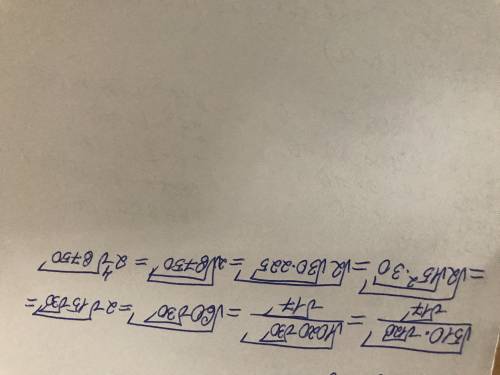 √510·√120/√17 = √1020√30/√17 = √60√30 = 2√15√30 =
= 2√√15²·30 = 2√√30·225 = 2√√6750 = 2⁴√6750